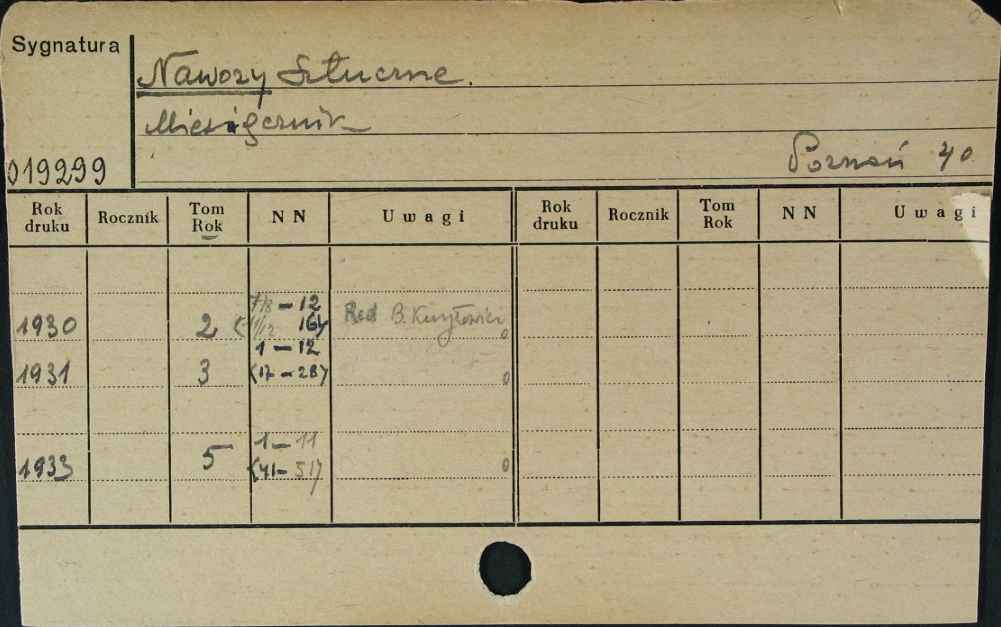 Sygnatura
Nawozy Sztuczne.
Miesięcznik
Poznań 40
019299
Rok druku Rocznik Tom Rok N N Uwagi Rok druku Rocznik Tom Rok N N Uwagi
7/8 – 12
1930 2 <11/12 16> Red B. 0
1 – 12
1931 3 <17 – 28> 0
1 – 11
1933 5 <41 – 51> 0